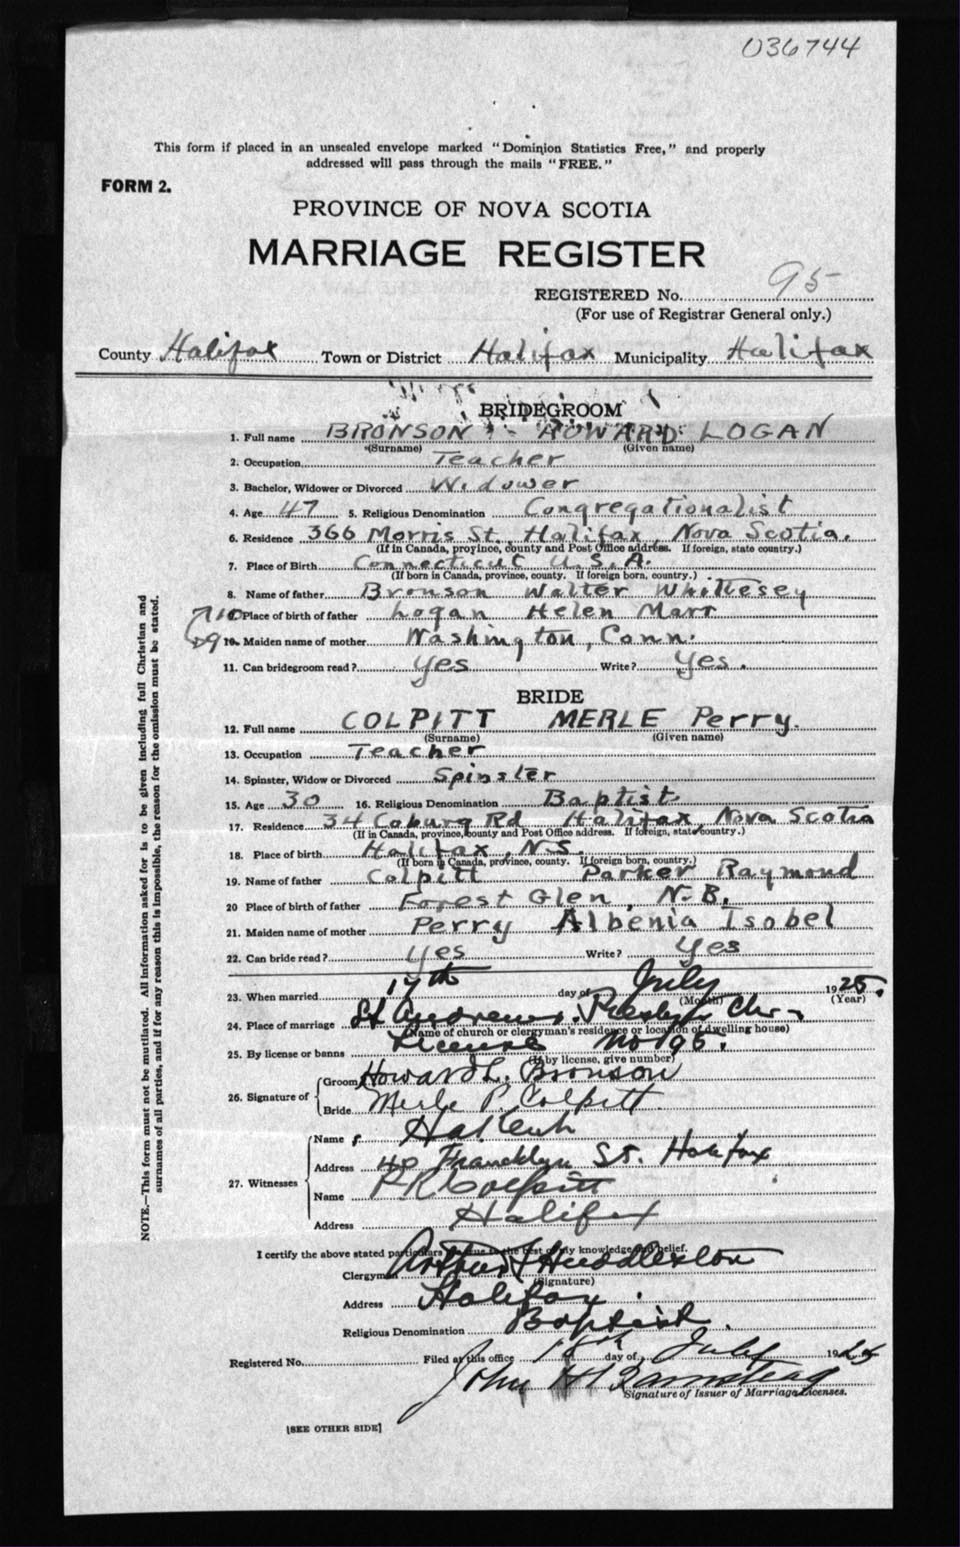 036744
This form if placed in an unsealed envelope marked "Dominion Statistics Free," and properly
addressed will pass through the mails "FREE."
FORM 2.
PROVINCE OF NOVA SCOTIA
MARRIAGE REGISTER
REGISTERED No. 95
(For use of Registrar General only.)
County Halifax Town or District Halifax Municipality Halifax
BRIDEGROOM
1. Full name BRONSON HOWARD LOGAN
(Surname) (Given name)
2. Occupation Teacher
3. Bachelor, Widower or Divorced Widower
4. Age 47 5. Religious Denomination Congregationalist
6. Residence 366 Morris St. Halifax, Nova Scotia.
(If in Canada, province, county and Post Office address. If foreign, state country.)
7. Place of Birth Connecticut U.S.A.
(If born in Canada, province, county. If foreign born, country.)
8. Name of father Bronson Walter Whittesey
10 Place of birth of father Logan Helen Marr
9 10. Maiden name of mother Washington, Conn.
11. Can bridegroom read? yes Write? yes.
BRIDE
12. Full name COLPITT MERLE Perry.
(Surname) (Given name)
13. Occupation Teacher
14. Spinster, Widow or Divorced Spinster
15. Age 30 16. Religious Denomination Baptist
17. Residence 34 Coburg Rd Halifax, Nova Scotia
(If in Canada, province, county and Post Office address. If foreign, state country.)
18. Place of birth Halifax, N.S.
(If born in Canada, province, county. If foreign born, country.)
19. Name of father Colpitt Parker Raymond
20 Place of birth of father Forest Glen, N.B.
21. Maiden name of mother Perry Albenia Isobel
22. Can bride read? yes Write? yes
23. When married 17th day of July 1925.
(Month) (Year)
24. Place of marriage St Andrews Presbyt Ch.
(Name of church or clergyman's residence or location of dwelling house)
25. By license or banns License No 195.
(If by license, give number)
26. Signature of
Groom Howard L. Bronson
Bride Merle P. Colpitt.
27. Witnesses
Name
Address 40 Francklyn St. Halifax
Name P R Colpitt
Address Halifax
I certify the above stated particulars are true to the best of my knowledge and belief.
Clergyman Arthur J Huddleston
(Signature)
Address Halifax.
Religious Denomination Baptist.
Registered No. Filed at this office 18th day of July 1925
John H Barnstead
Signature of Issuer of Marriage Licenses.
[SEE OTHER SIDE]
NOTE.—This form must not be mutilated. All information asked for is to be given including full Christian and
surnames of all parties, and if for any reason this is impossible, the reason for the omission must be stated.